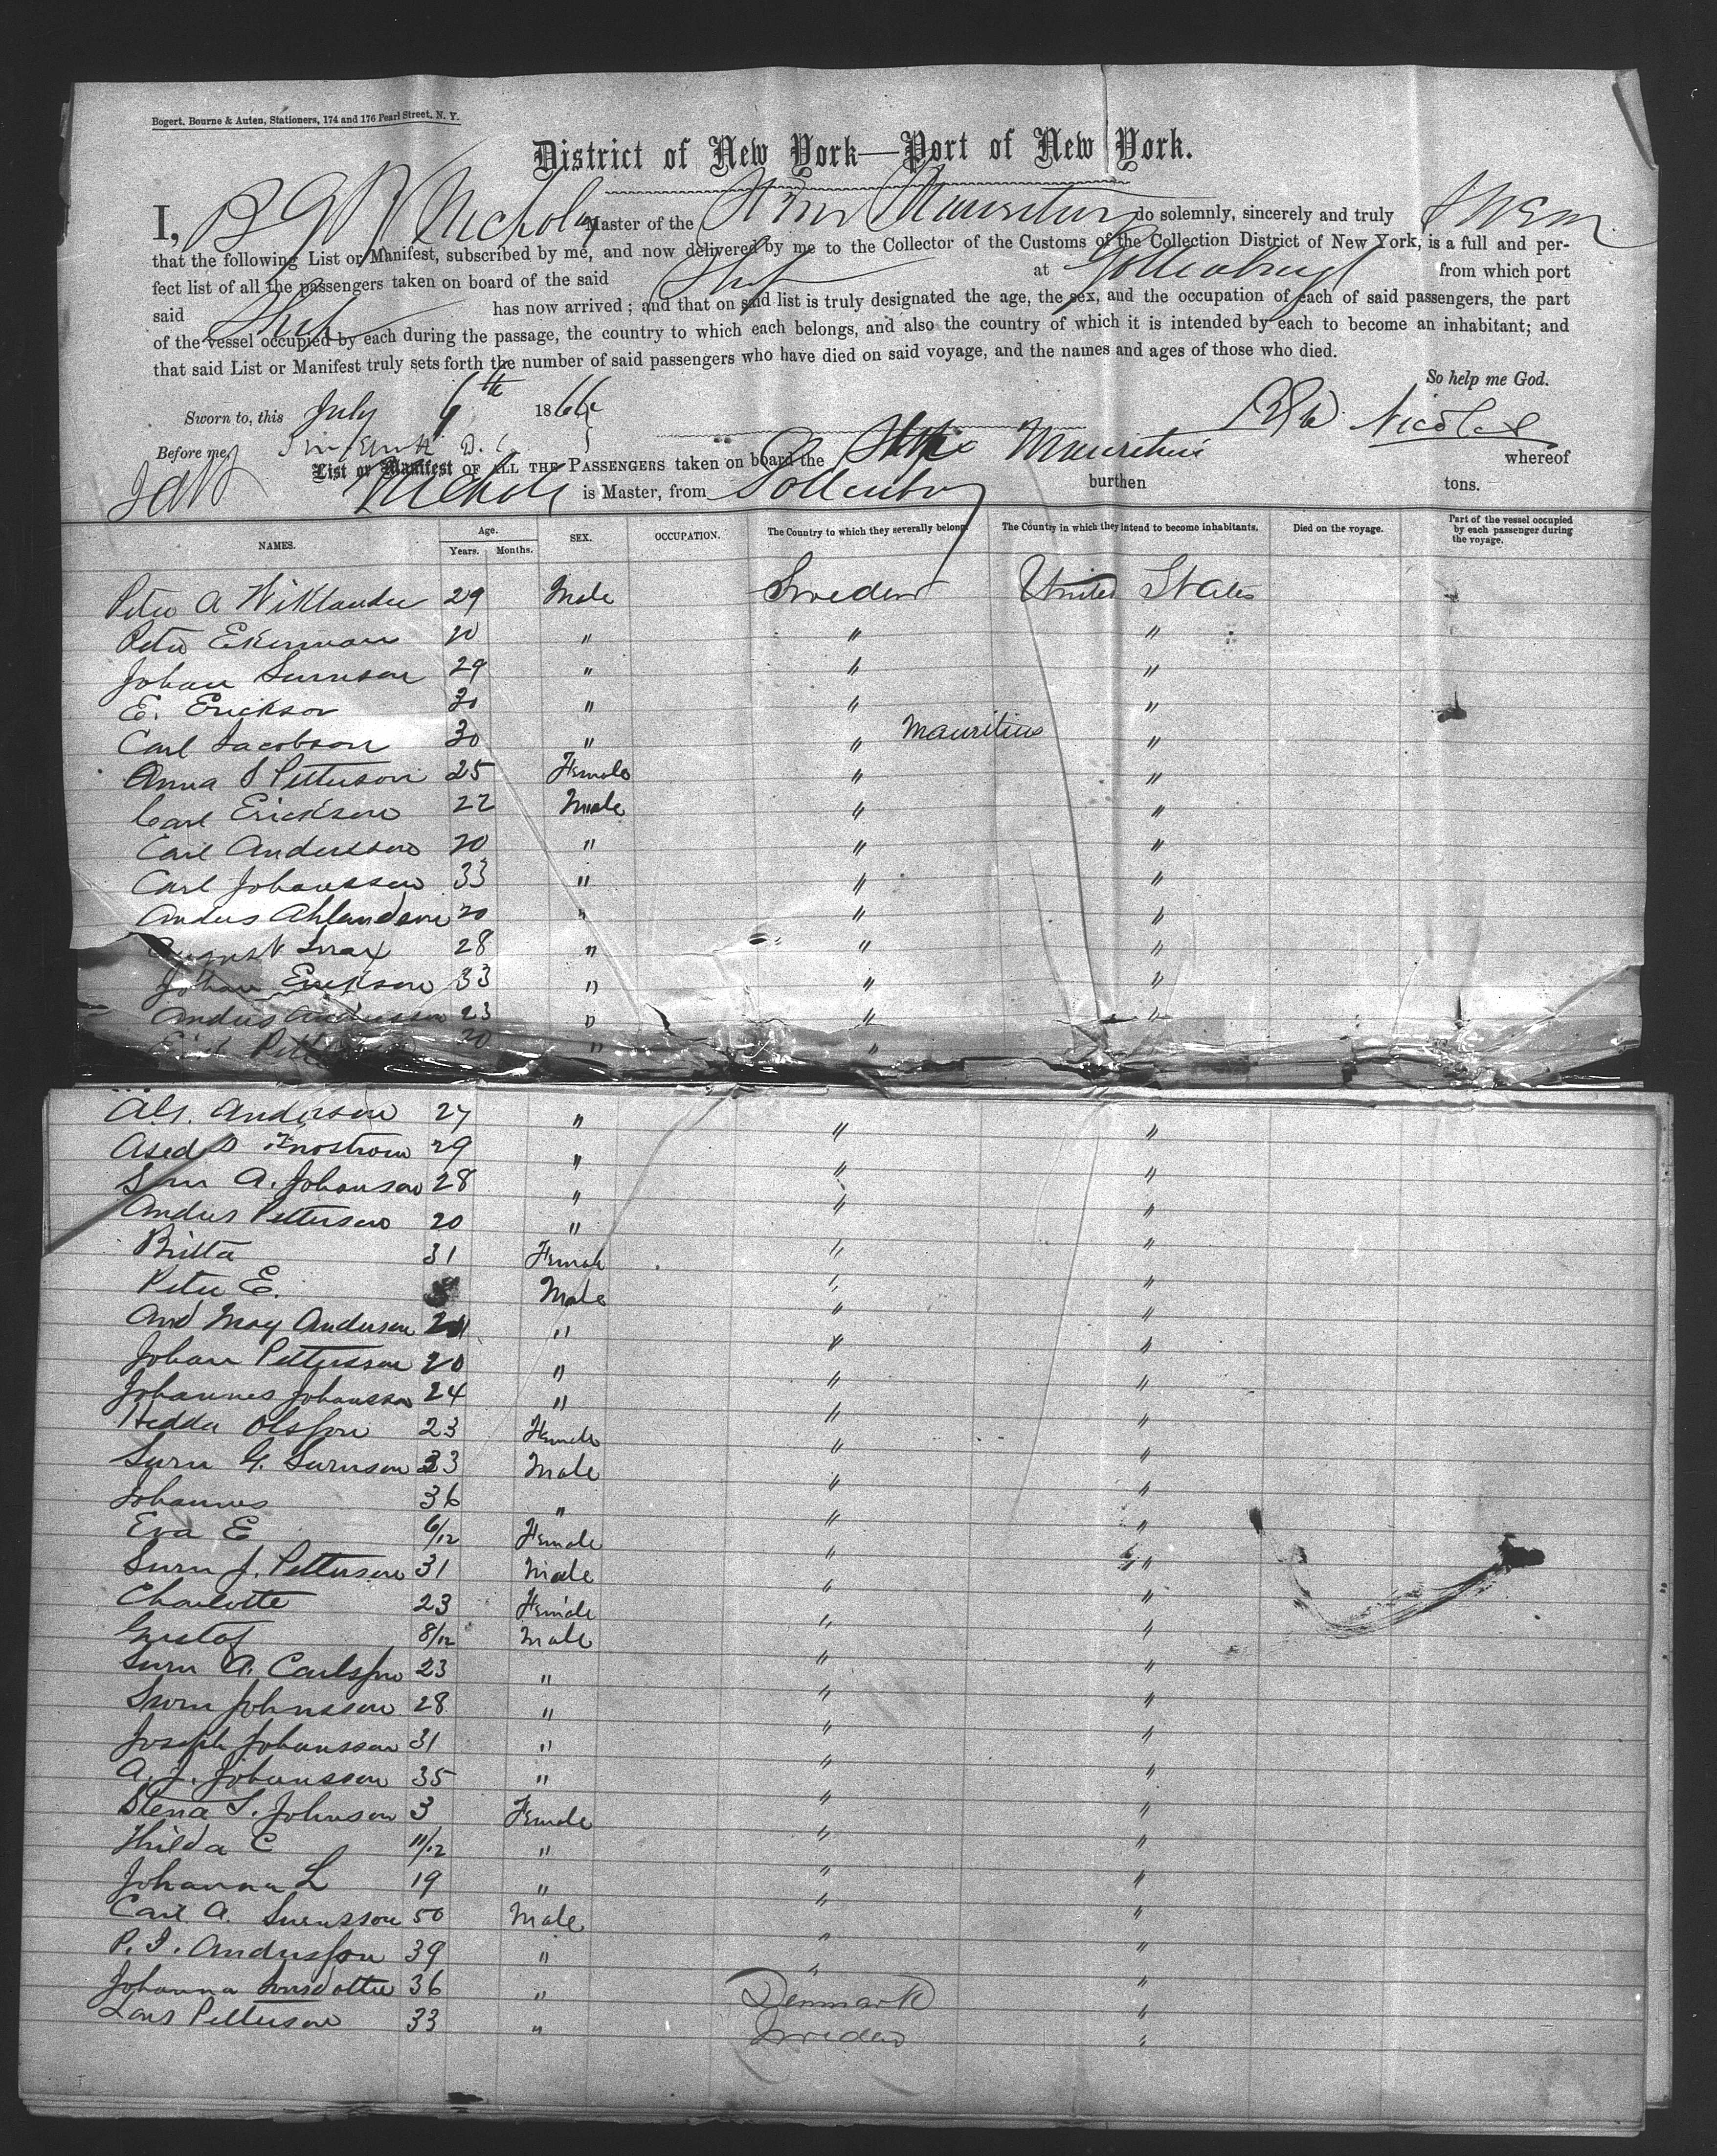 Bogert, Bourne & Auten, Stationers, 174 and 176 Pearl Street, N. Y.
District of New York—Port of New York.
I, Nichols Master of the Mauritius do solemnly, sincerely and truly swear
that the following List or Manifest, subscribed by me, and now delivered by me to the Collector of the Customs of the Collection District of New York, is a full and per-
fect list of all the passengers taken on board of the said Ship at Gottenburg from which port
said Ship has now arrived; and that on said list is truly designated the age, the sex, and the occupation of each of said passengers, the part
of the vessel occupied by each during the passage, the country to which each belongs, and also the country of which it is intended by each to become an inhabitant; and
that said List or Manifest truly sets forth the number of said passengers who have died on said voyage, and the names and ages of those who died.
So help me God.
Sworn to, this July 6th 1866
Before me, D. C.
List or Manifest OF ALL THE PASSENGERS taken on board the Mauritius whereof
Nichols is Master, from Gottenburg burthen tons.
NAMES. Age. Years. Months. SEX. OCCUPATION. The Country to which they severally belong. The Country in which they intend to become inhabitants. Died on the voyage. Part of the vessel occupied by each passenger during the voyage.
Peter A Wiklander 29 Male Sweden United States
Peter Ekerman 20 " " "
Johan Svenson 29 " " "
E. Erickson 30 " " "
Mauritius
Carl Jacobson 30 " " "
Anna S Petterson 25 Female " "
Carl Erickson 22 Male " "
Carl Andersson 20 " " "
Carl Johansson 33 " " "
Anders 20 " " "
August 28 " " "
Johan Erickson 33 " " "
Anders Andersson 23 " " "
20 " "
Anderson 27 " " "
29 " " "
A. Johanson 28 " " "
Anders Petterson 20 " " "
Britta 31 Female " "
Peter E. Male " "
And Mag Anderson " " "
Johan Pettersson 20 " " "
Johannes Johansson 24 " " "
Hedda Olsson 23 Female " "
Sven G. Svenson 33 Male " "
Johannes 36 " " "
Eva E 6/12 Female " "
Sven J. Petterson 31 Male " "
Charlotte 23 Female " "
Gustaf 8/12 Male " "
Sven A. Carlsson 23 " " "
Sven Johnsson 28 " " "
Joseph Johansson 31 " " "
A. J. Johansson 35 " " "
Stena L. Johnson 3 Female " "
Thilda C 11/12 " " "
Johanna L 19 " " "
Carl A. Svensson 50 Male " "
P. J. Andersson 39 " " "
Johanna 36 " Denmark "
Lars Petterson 33 " Sweden "